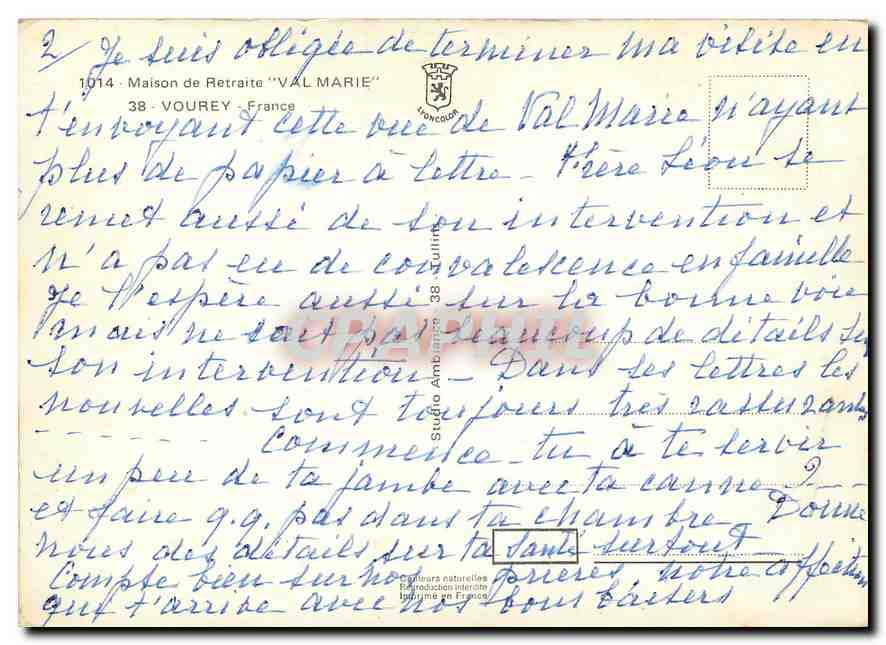 2/ Je suis obligée de terminer ma visite en
1014 - Maison de Retraite "VAL MARIE"
38 - VOUREY - France
LYONCOLOR
t'envoyant cette vue de Val Marie n'ayant
plus de papier à lettre - Frère Léon se
remet aussi de son intervention et
n'a pas eu de convalescence en famille
Je l'espère aussi sur la bonne voie
mais ne sait pas beaucoup de détails sur
son intervention - Dans ses lettres les
nouvelles sont toujours très rassurantes
Commence-tu à te servir
un peu de ta jambe avec ta canne ?
et faire q.q. pas dans ta chambre Donne
nous des détails sur ta santé surtout
Compte bien sur nos prières, notre affection
qui t'arrive avec nos bons baisers
Studio Ambiance 38 - Tullins
Couleurs naturelles
Reproduction interdite
Imprimé en France